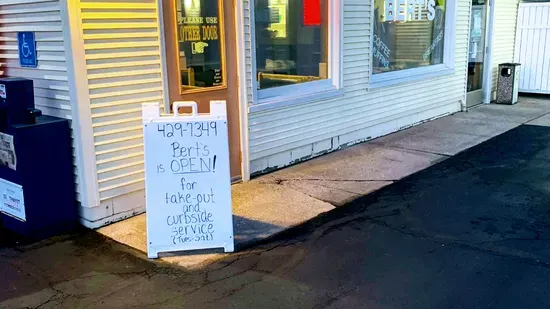 PLEASE USE
OTHER DOOR
BERT'S
429-7349
Bert's
is OPEN!
for
take-out
and
curbside
service
(Tues-Sat)